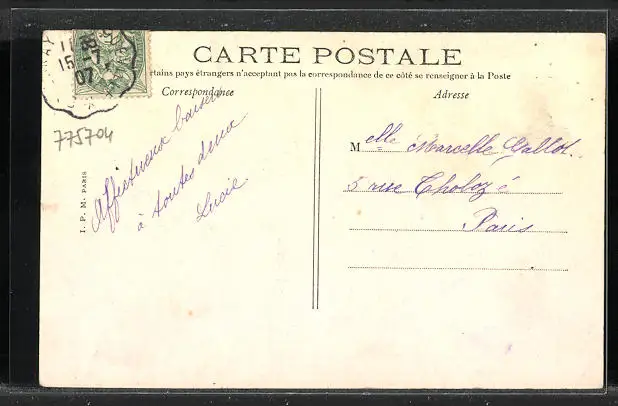 CARTE POSTALE
rtains pays étrangers n'acceptant pas la correspondance de ce côté se renseigner à la Poste
Correspondance
Adresse
775704
Affectueux baisers
à toutes deux
Lucie.
Melle Marcelle Gallot.
5 rue Tholozé
Paris
I. P. M. PARIS